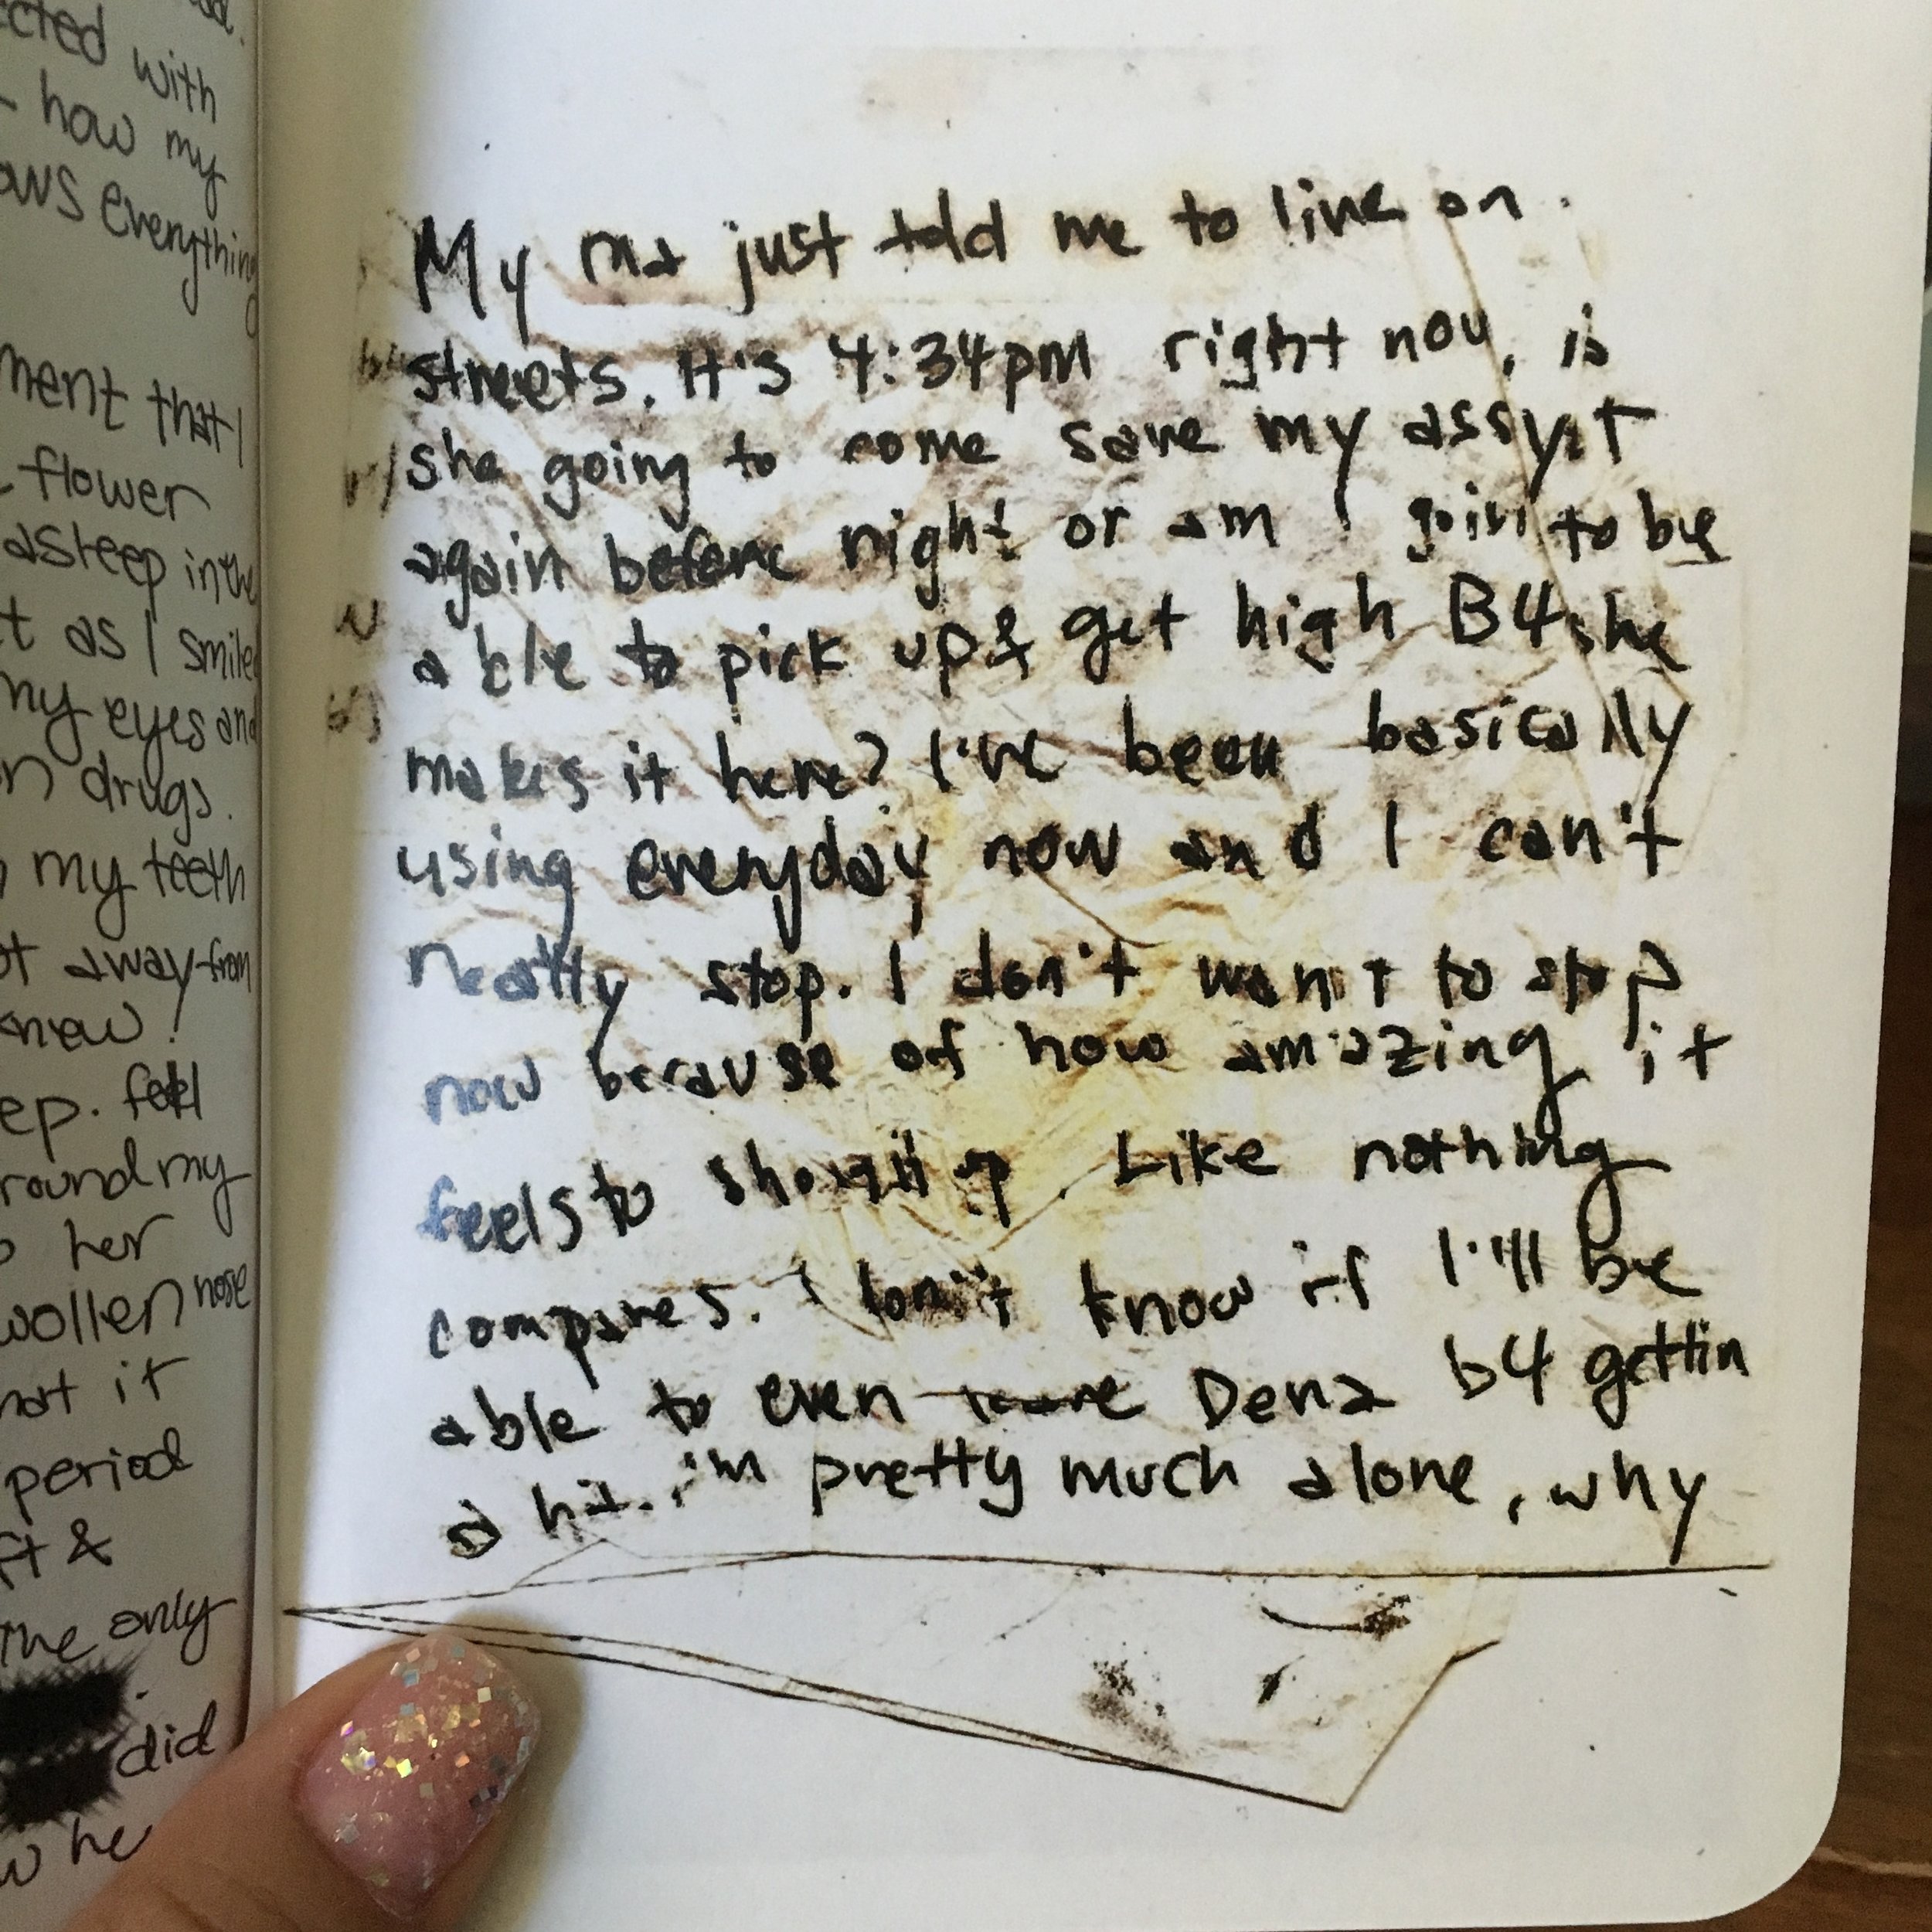 cted with
how my
ows everything
ment that I
flower
asleep in the
t as I smiled
my eyes and
n drugs.
my teeth
ot away from
knew!
ep. feel
round my
her
wollen nose
not it
period
ft &
The only
did
w he
My ma just told me to live on
streets. It's 4:34pm right now, is
she going to come save my ass yet
again before night or am I goin to be
able to pick up & get high B4 she
makes it here? I've been basically
using everyday now and I can't
really stop. I don't want to stop
now because of how amazing it
feels to up. Like nothing
compares. I don't know if I'll be
able to even Dena b4 gettin
a hit. i'm pretty much alone, why